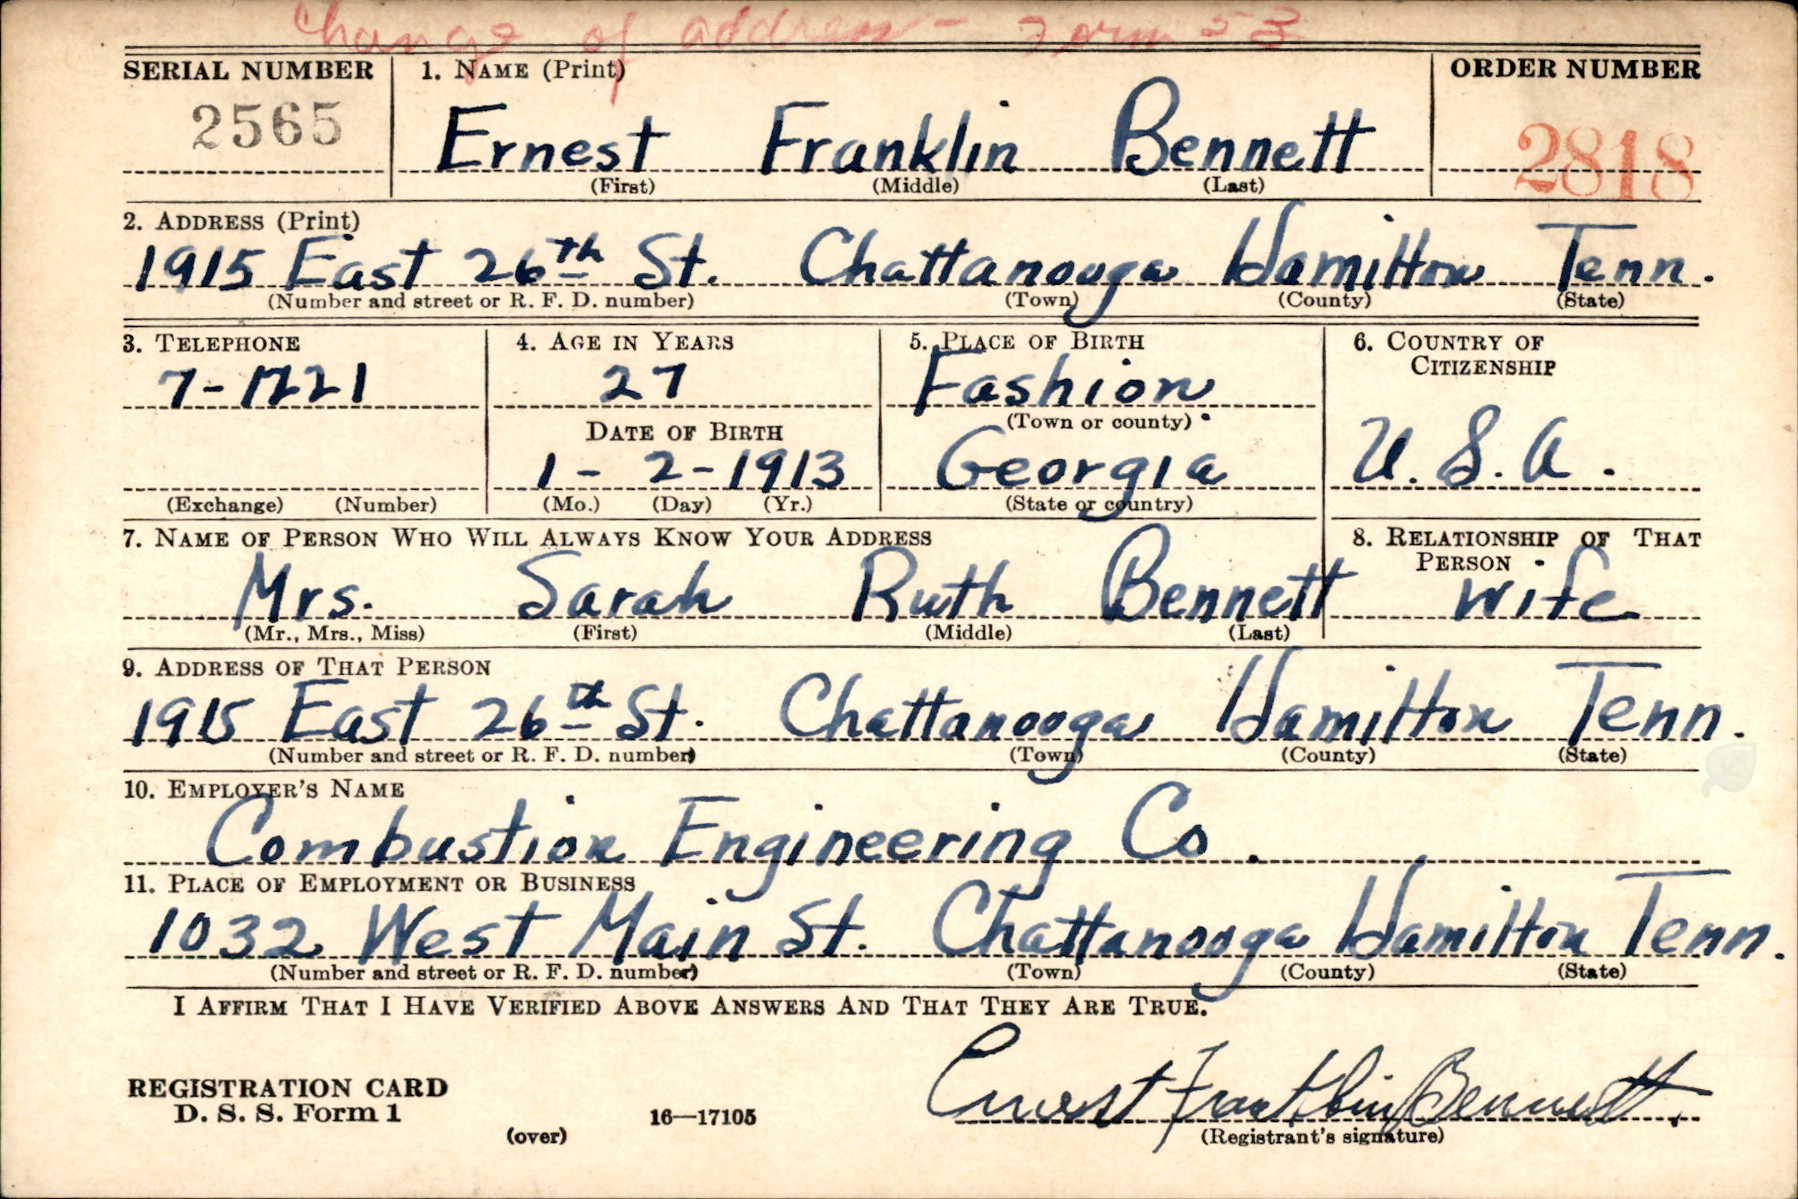 Change of address - Form 53
SERIAL NUMBER 1. NAME (Print) ORDER NUMBER
2565 Ernest Franklin Bennett 2818
(First) (Middle) (Last)
2. ADDRESS (Print)
1915 East 26th St. Chattanooga Hamilton Tenn.
(Number and street or R. F. D. number) (Town) (County) (State)
3. TELEPHONE 4. AGE IN YEARS 5. PLACE OF BIRTH 6. COUNTRY OF
CITIZENSHIP
7-1221 27 Fashion
(Town or county)
DATE OF BIRTH
1 - 2 - 1913 Georgia U. S. A.
(Exchange) (Number) (Mo.) (Day) (Yr.) (State or country)
7. NAME OF PERSON WHO WILL ALWAYS KNOW YOUR ADDRESS 8. RELATIONSHIP OF THAT
PERSON
Mrs. Sarah Ruth Bennett wife
(Mr., Mrs., Miss) (First) (Middle) (Last)
9. ADDRESS OF THAT PERSON
1915 East 26th St. Chattanooga Hamilton Tenn.
(Number and street or R. F. D. number) (Town) (County) (State)
10. EMPLOYER'S NAME
Combustion Engineering Co.
11. PLACE OF EMPLOYMENT OR BUSINESS
1032 West Main St. Chattanooga Hamilton Tenn.
(Number and street or R. F. D. number) (Town) (County) (State)
I AFFIRM THAT I HAVE VERIFIED ABOVE ANSWERS AND THAT THEY ARE TRUE.
REGISTRATION CARD
D. S. S. Form 1 16—17105 Ernest Franklin Bennett.
(over) (Registrant's signature)